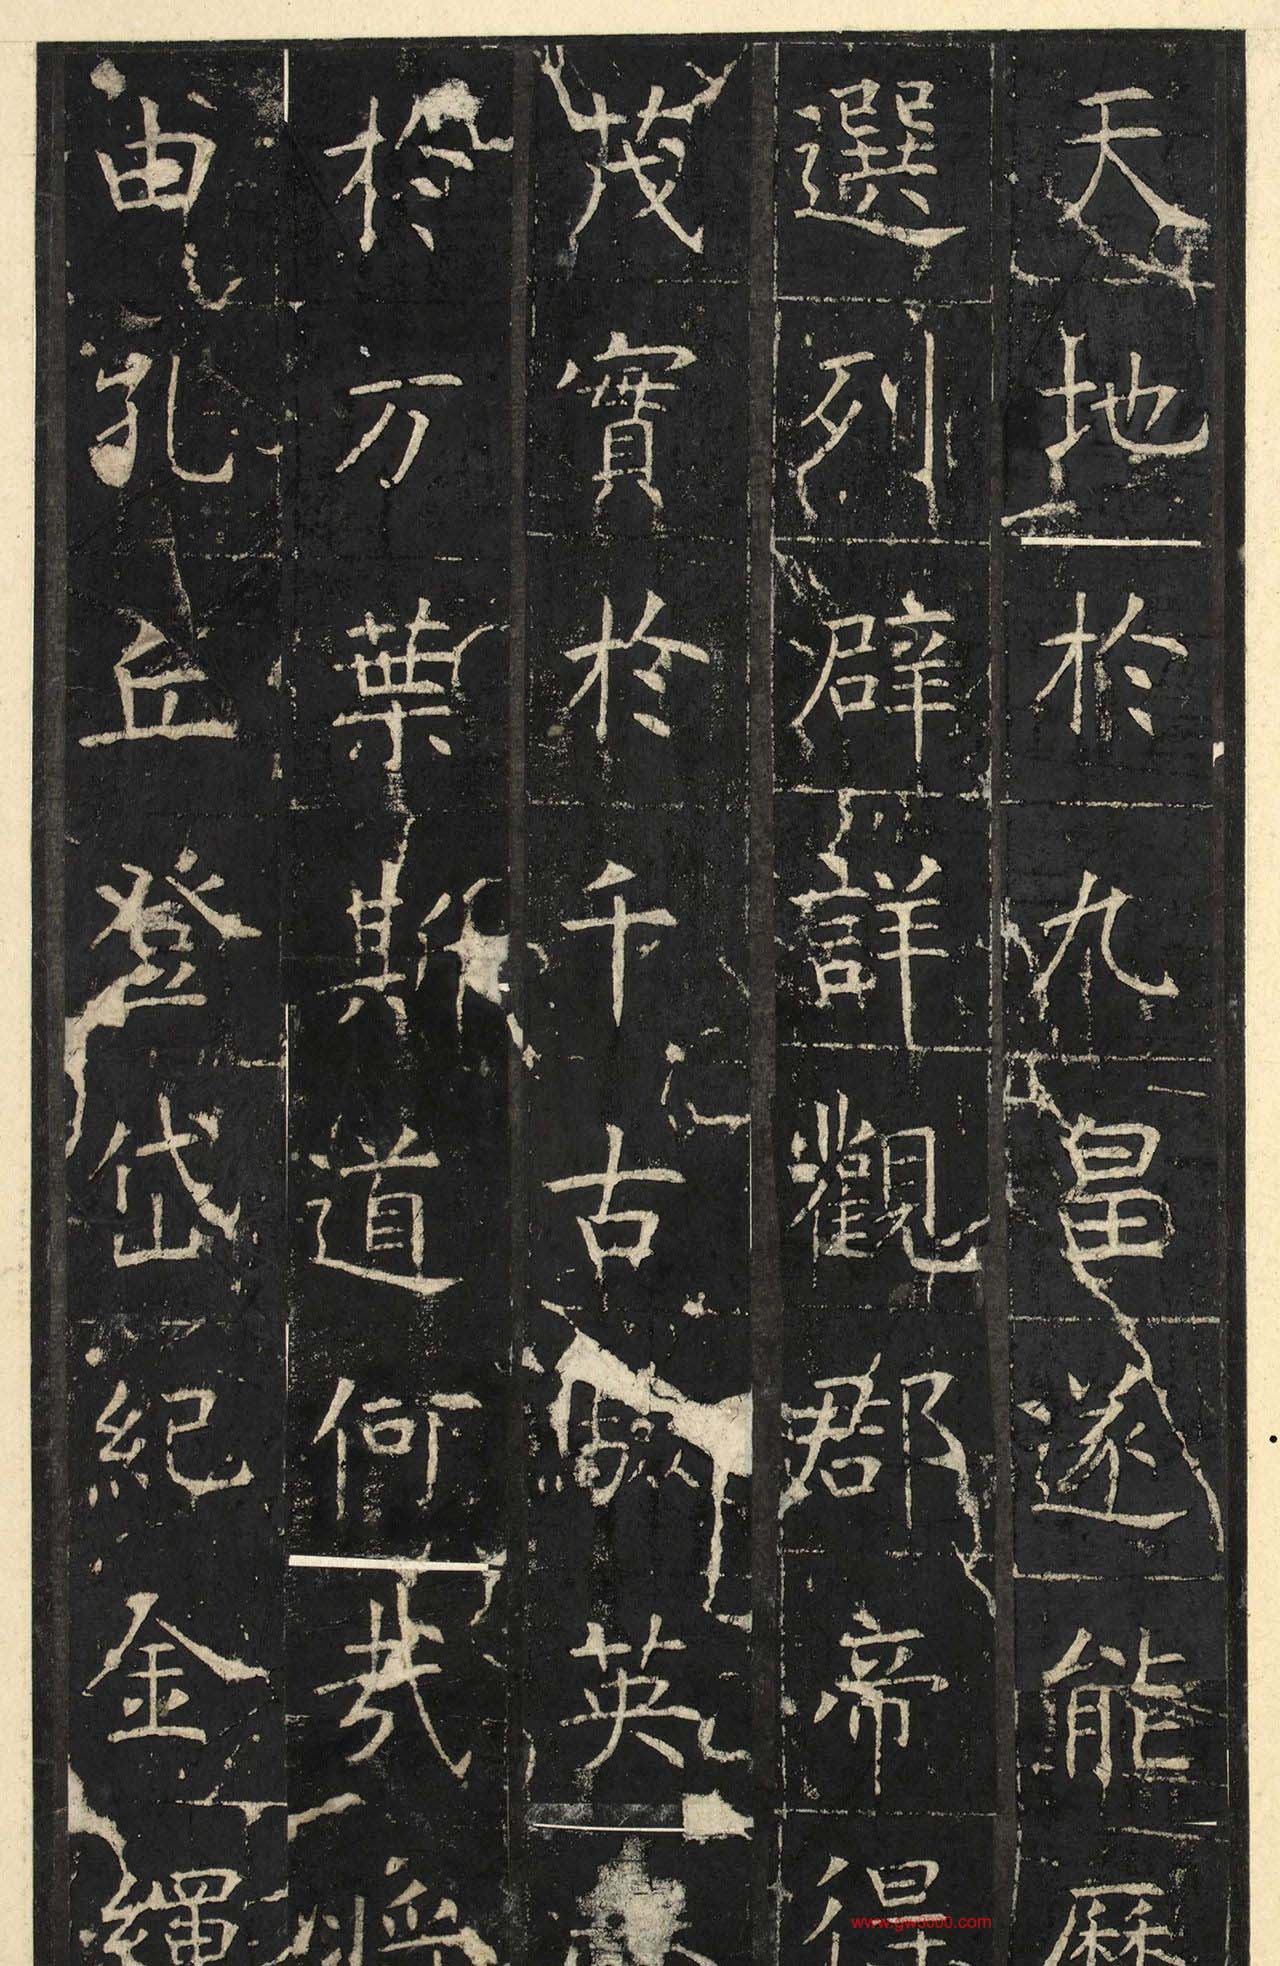 天地於九遂能歷
選列辟詳觀郡帝得
茂實於千古英
於万葉斯道何
由孔丘登岱紀金繩
www.gw3000.com